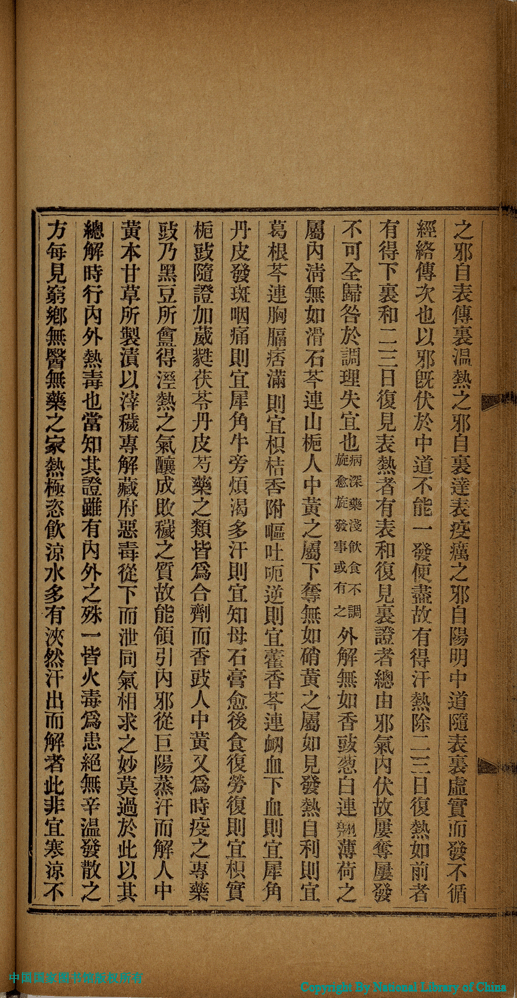 之邪自表傳裏溫熱之邪自裏達表疫癘之邪自陽明中道隨表裏虛實而發不循
經絡傳次也以邪旣伏於中道不能一發便盡故有得汗熱除二三日復熱如前者
有得下裏和二三日復見表熱者有表和復見裏證者總由邪氣內伏故屢奪屢發
不可全歸咎於調理失宜也病深藥淺飲食不調旋愈旋發事或有之外解無如香豉葱白連翹薄荷之
屬內清無如滑石芩連山梔人中黃之屬下奪無如硝黃之屬如見發熱自利則宜
葛根芩連胸膈痞滿則宜枳桔香附嘔吐呃逆則宜藿香芩連衂血下血則宜犀角
丹皮發斑咽痛則宜犀角牛旁煩渴多汗則宜知母石膏愈後食復勞復則宜枳實
梔豉隨證加葳蕤茯苓丹皮芍藥之類皆爲合劑而香豉人中黃又爲時疫之專藥
豉乃黑豆所盦得溼熱之氣釀成敗穢之質故能領引內邪從巨陽蒸汗而解人中
黃本甘草所製漬以滓穢專解藏府惡毒從下而泄同氣相求之妙莫過於此以其
總解時行內外熱毒也當知其證雖有內外之殊一皆火毒爲患絕無辛溫發散之
方每見窮鄉無醫無藥之家熱極恣飲涼水多有浹然汗出而解者此非宜寒涼不
中国国家图书馆版权所有
Copyright By National Library of China